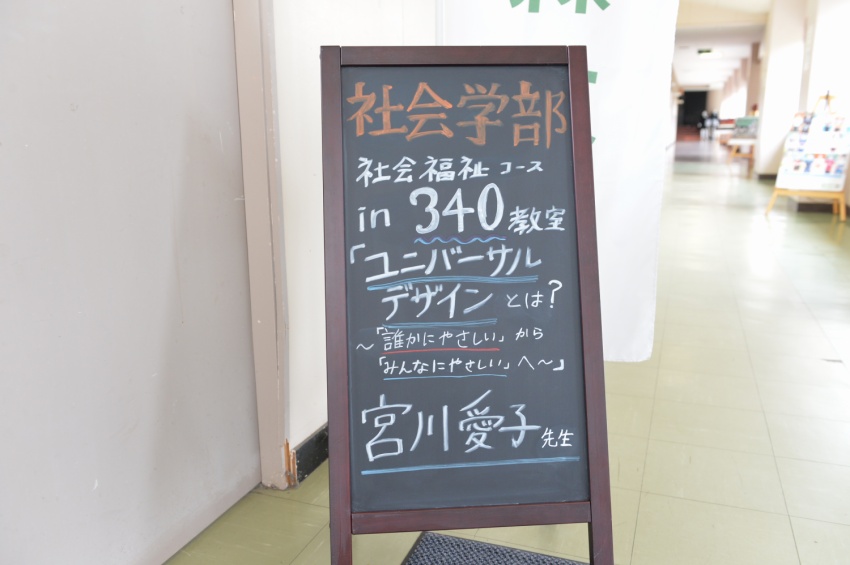 社会学部
社会福祉コース
in 340 教室
「ユニバーサル
デザインとは?
~「誰かにやさしい」から
「みんなにやさしい」へ~」
宮川愛子先生